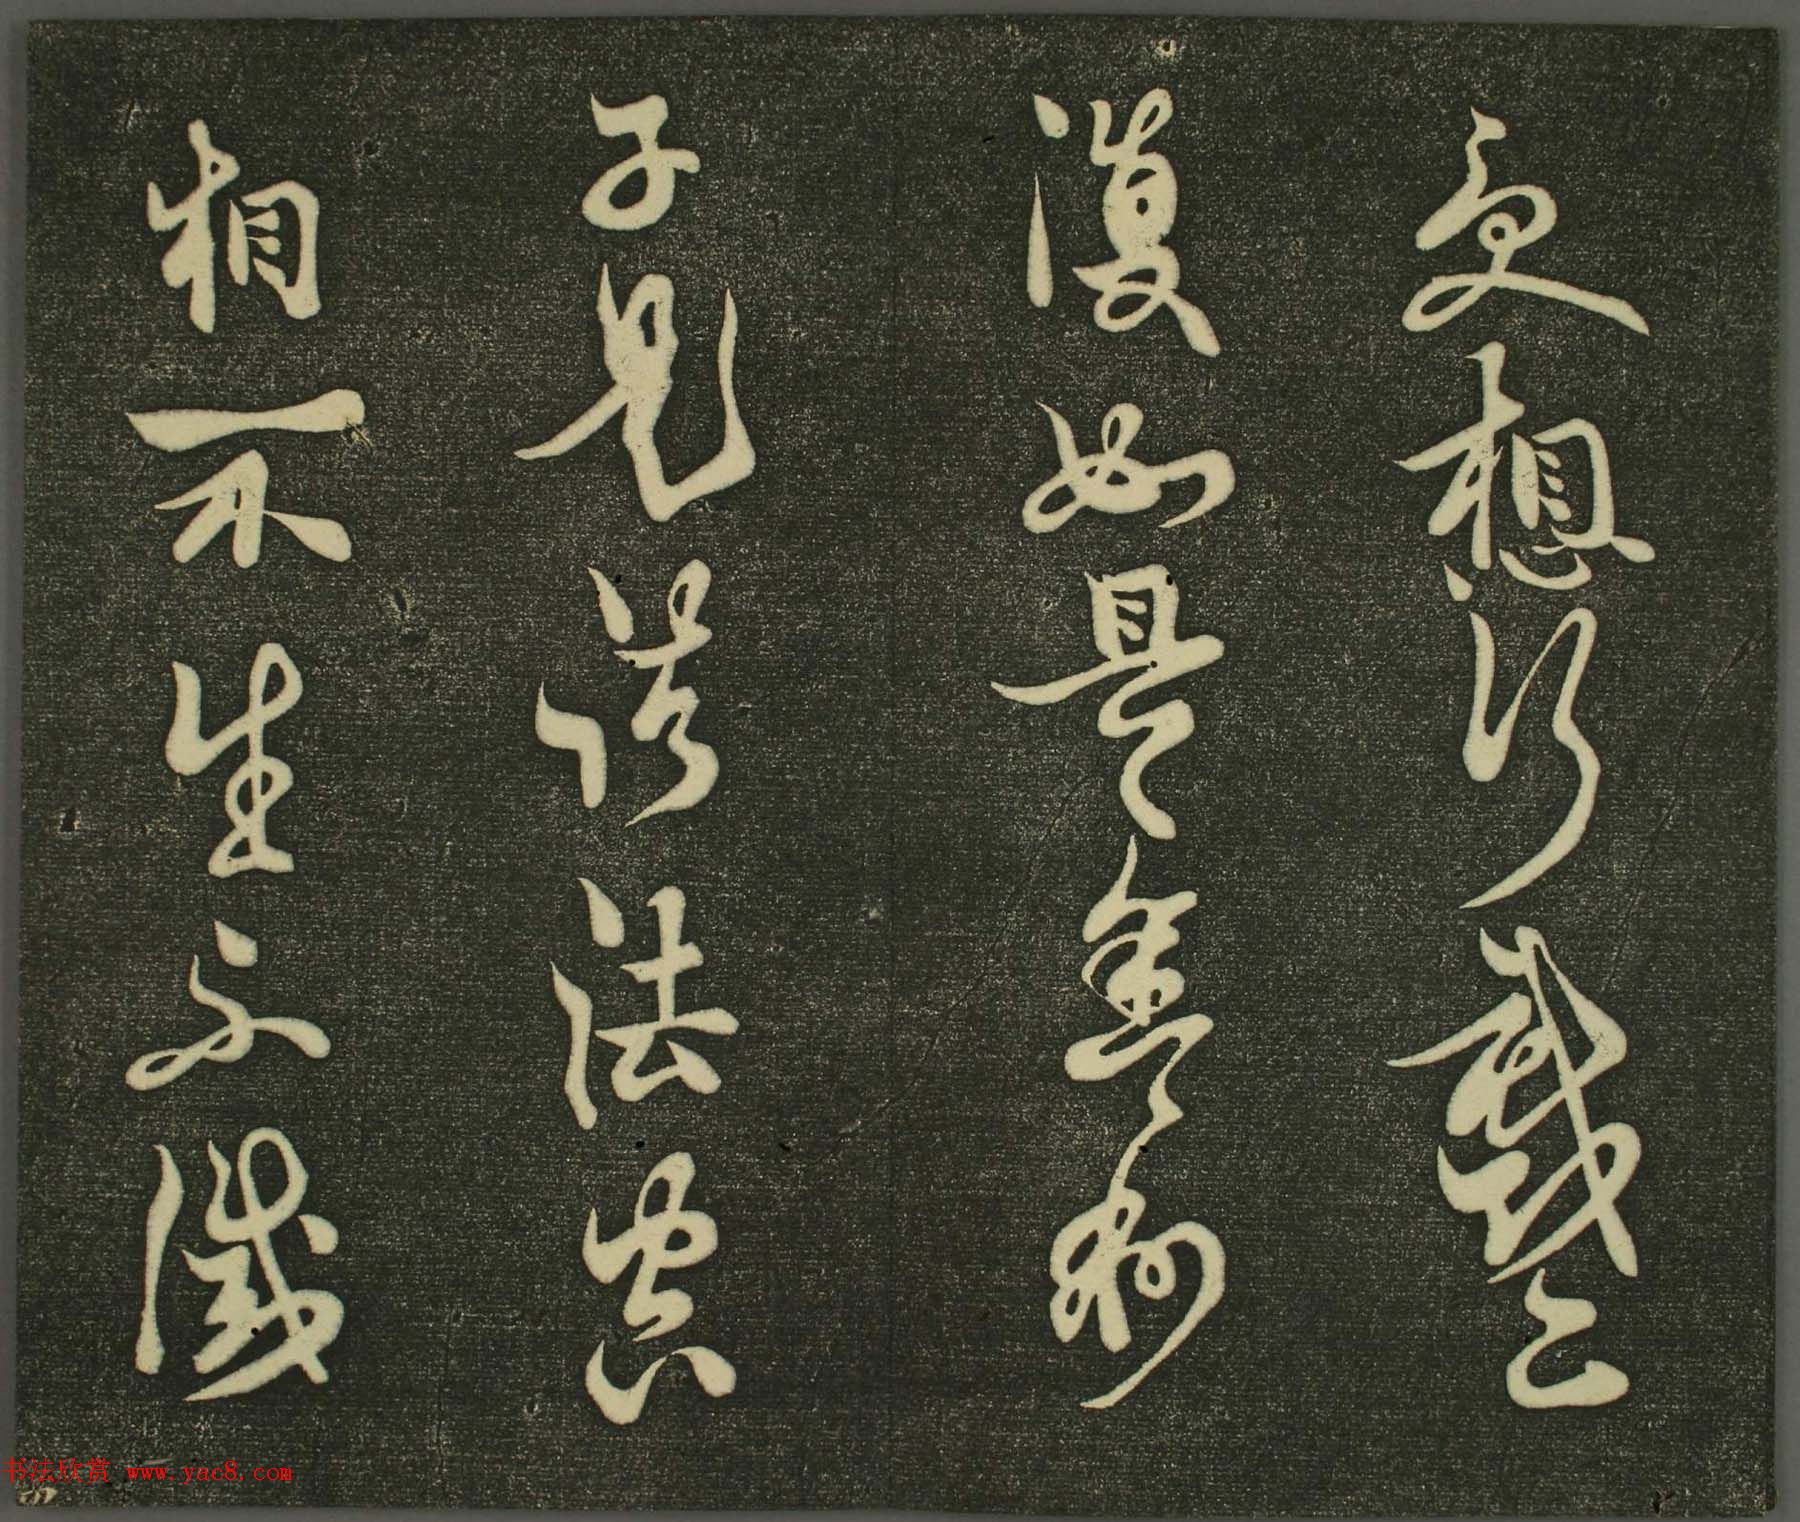 受想行識亦
復如是舍利
子是諸法空
相不生不滅
书法欣赏 www.yac8.com